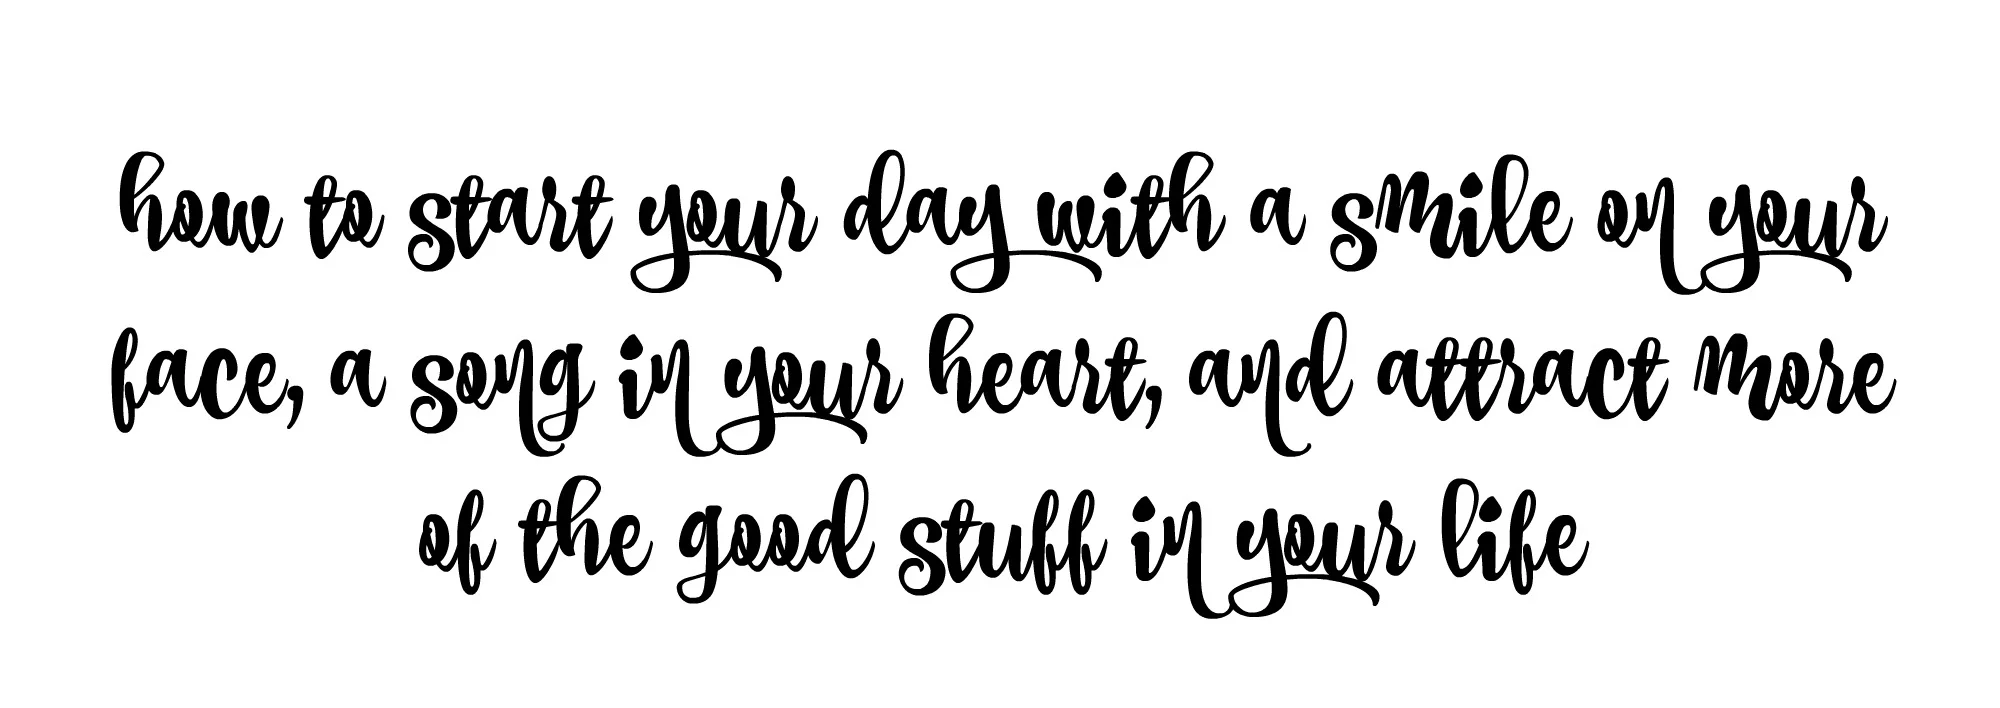 how to start your day with a smile on your
face, a song in your heart, and attract more
of the good stuff in your life